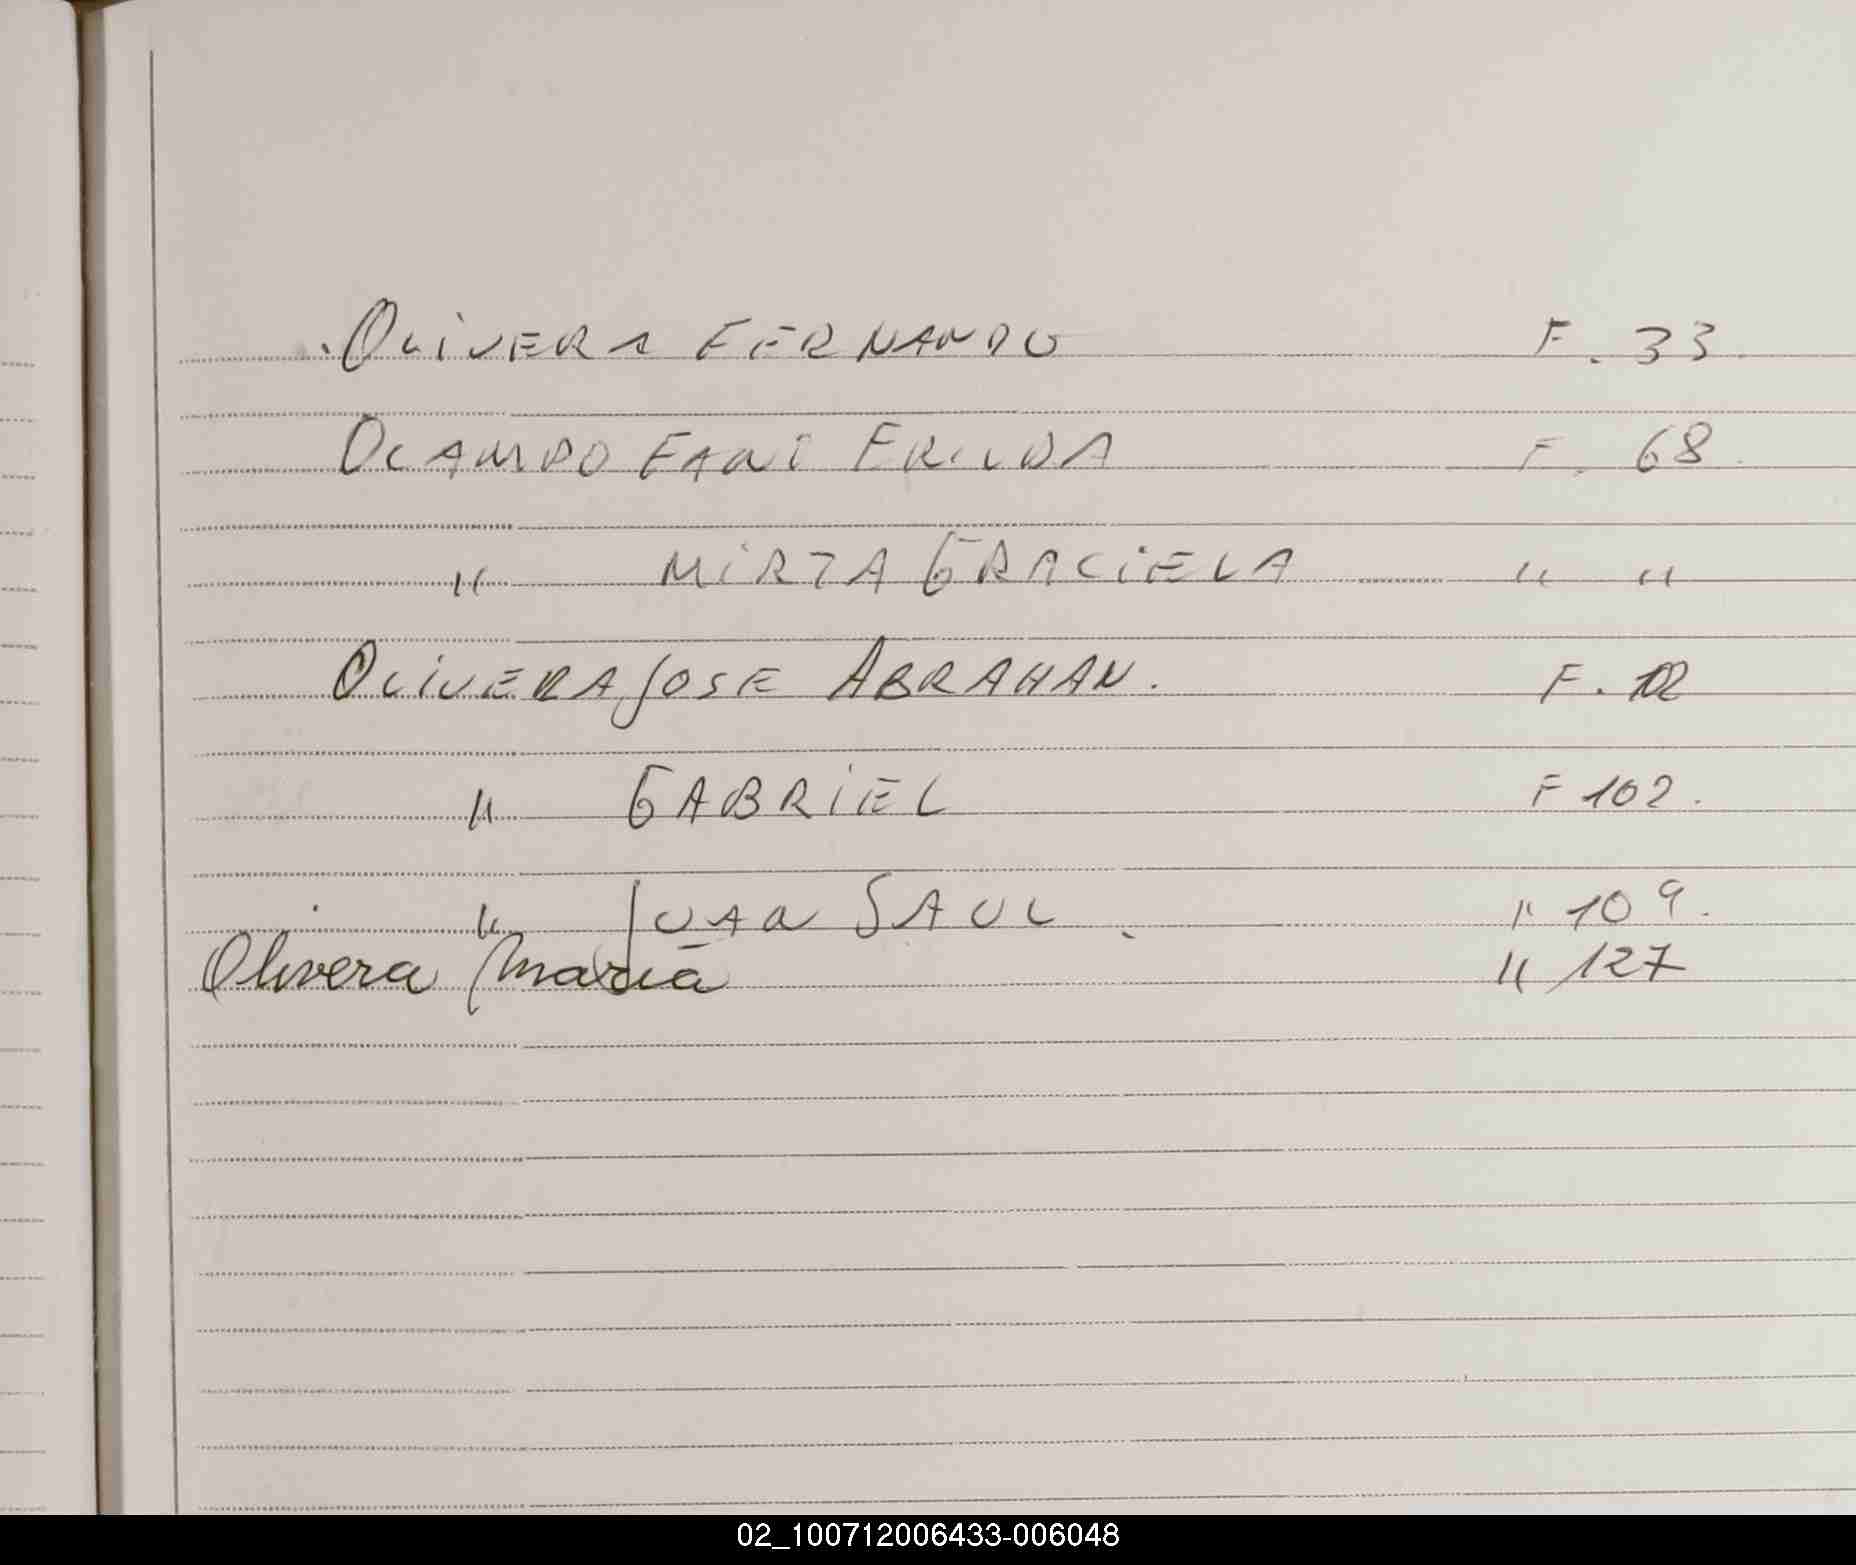 . OLIVERA FERNANDO F. 33.
OCAMPO FANI FRIDA F. 68.
" MIRTA GRACIELA " "
OLIVERA JOSE ABRAHAN. F.
" GABRIEL F 102.
" JUAN SAUL . " 109.
Olivera María " 127
02_100712006433-006048